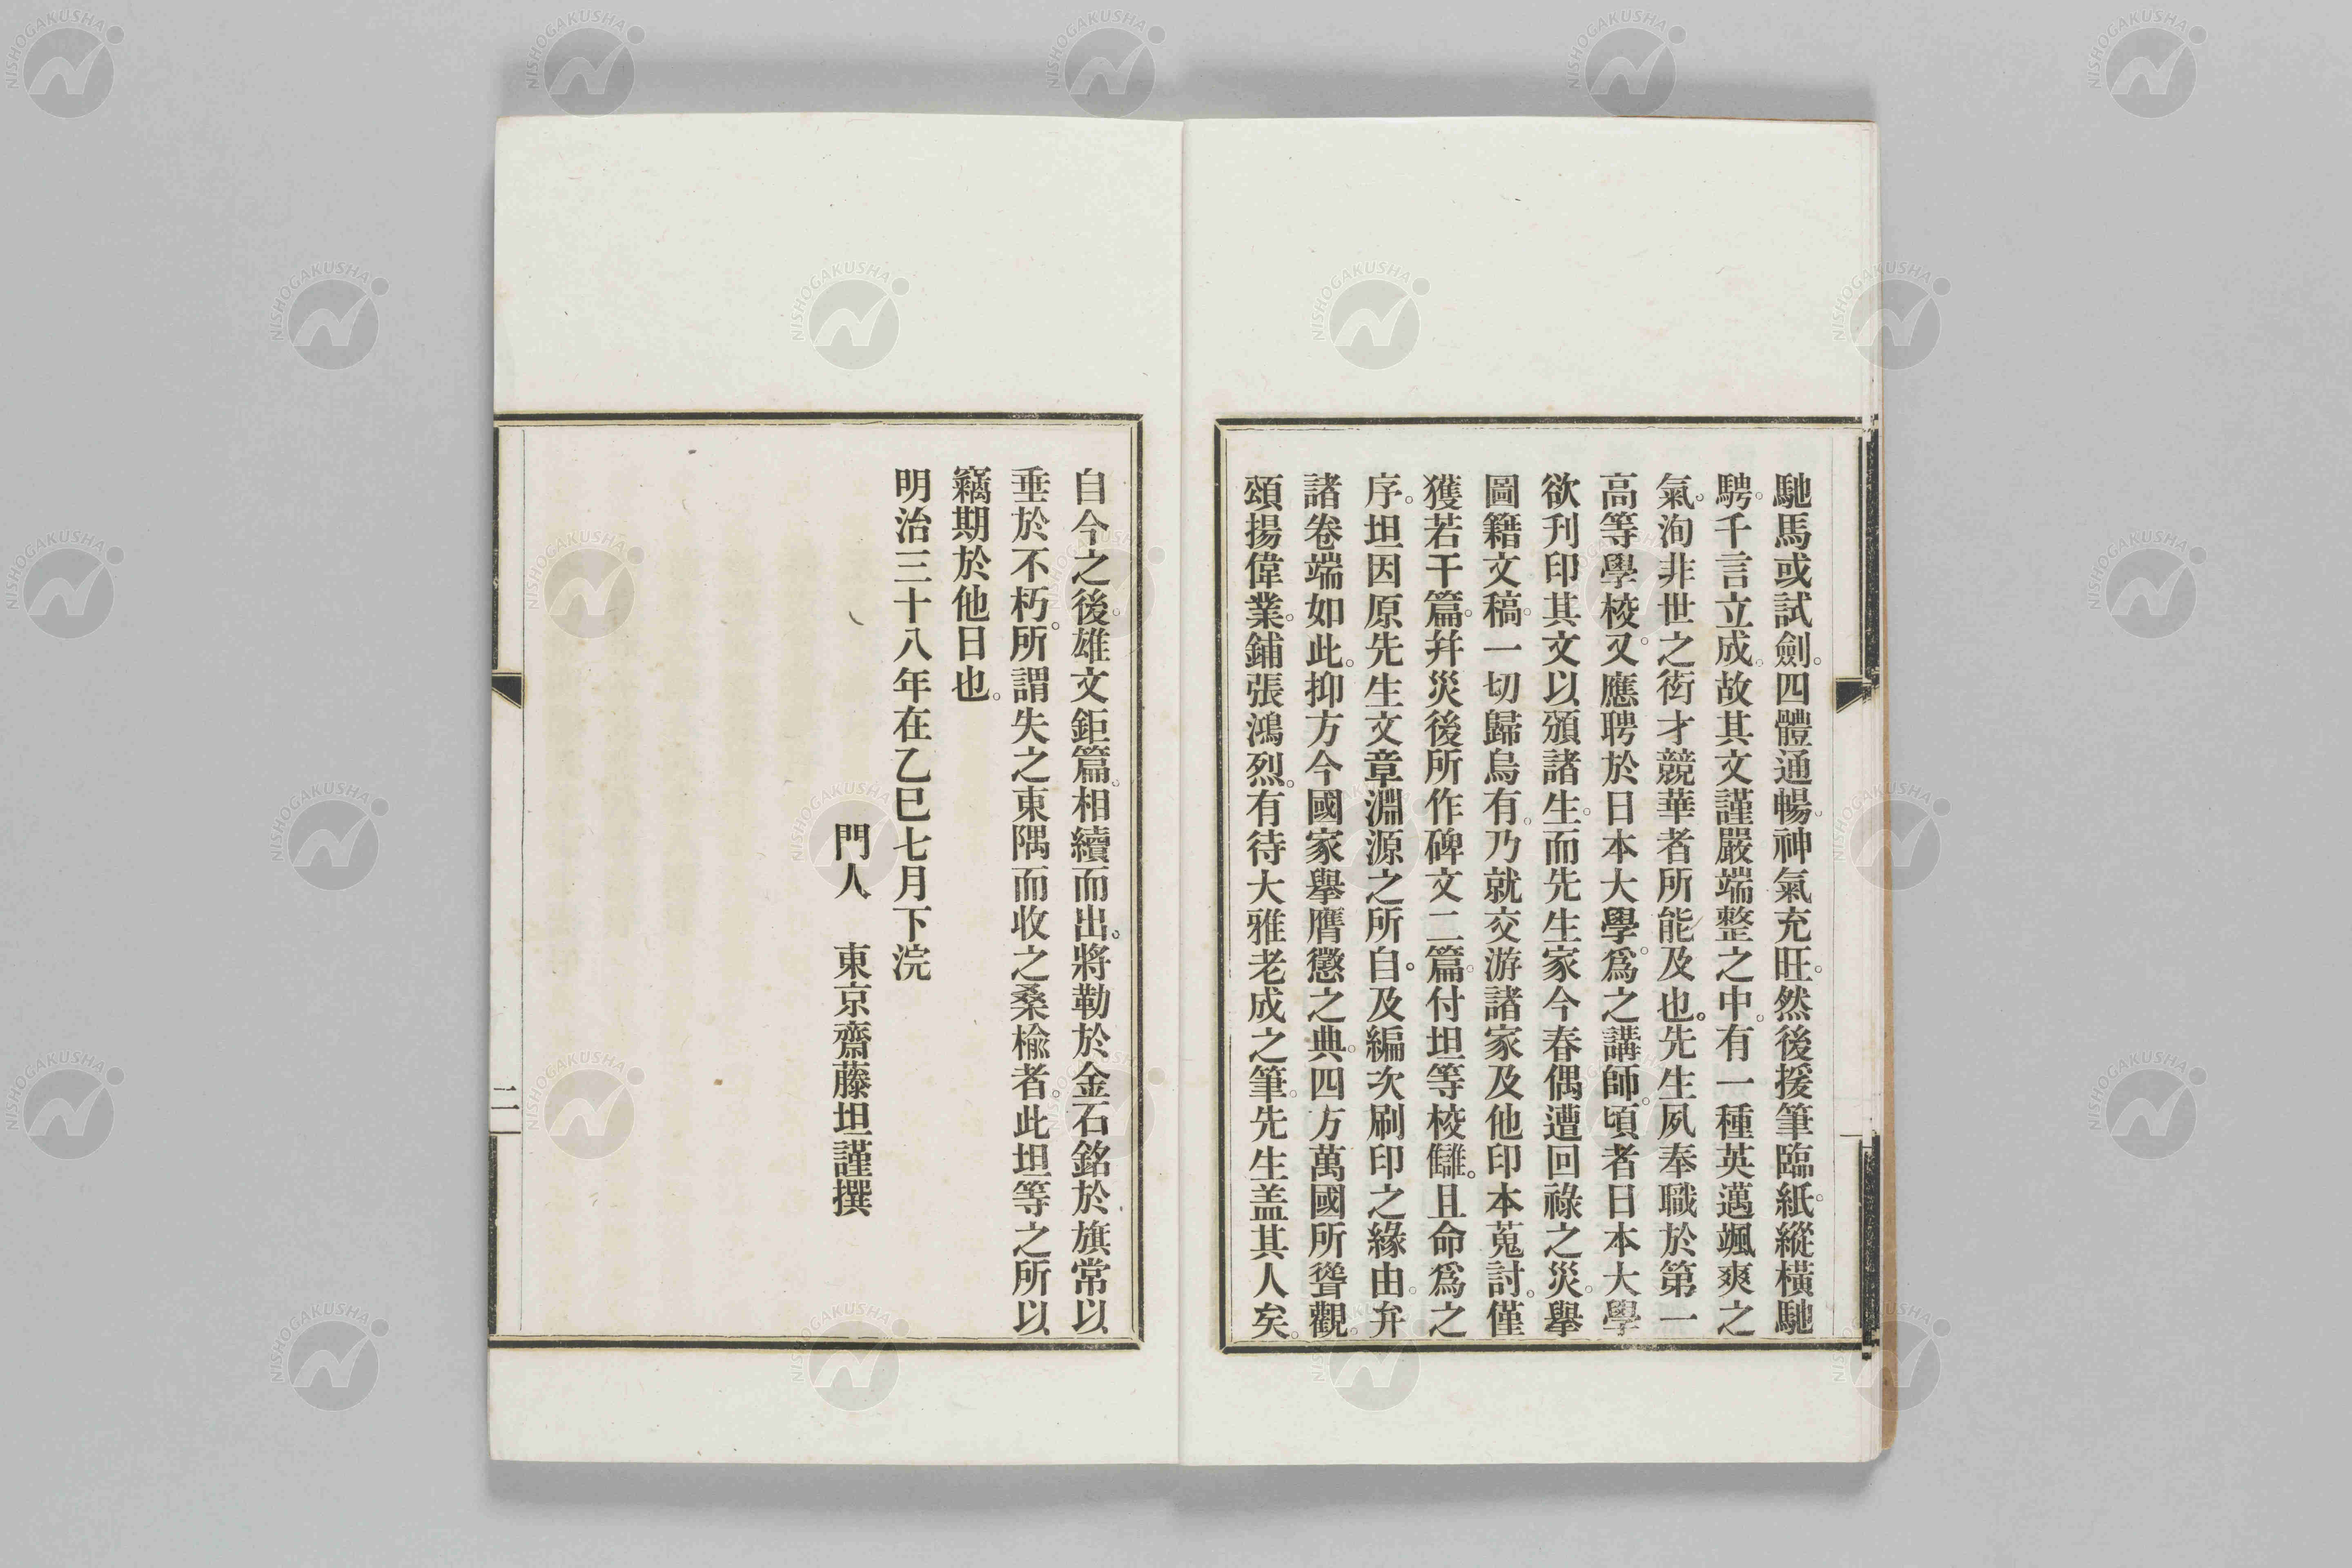 馳馬或試劍。四體通暢。神氣充旺。然後援筆臨紙。縱橫馳
騁。千言立成。故其文謹嚴端整之中。有一種英邁颯爽之
氣。洵非世之衒才競華者所能及也。先生夙奉職於第一
高等學校。又應聘於日本大學。爲之講師。頃者日本大學
欲刊印其文以頒諸生。而先生家今春偶遭回祿之災。擧
圖籍文稿。一切歸烏有。乃就交游諸家及他印本蒐討。僅
獲若干篇。幷災後所作碑文二篇。付坦等校讎。且命爲之
序。坦因原先生文章淵源之所自。及編次刷印之緣由。弁
諸卷端如此。抑方今國家擧膺懲之典。四方萬國所聳觀。
頌揚偉業。鋪張鴻烈。有待大雅老成之筆。先生盖其人矣。
自今之後。雄文鉅篇。相續而出。將勒於金石銘於旗常以
垂於不朽。所謂失之東隅而收之桑楡者。此坦等之所以
竊期於他日也。
明治三十八年在乙巳七月下浣
門人　東京齋藤坦謹撰
二
NISHOGAKUSHA